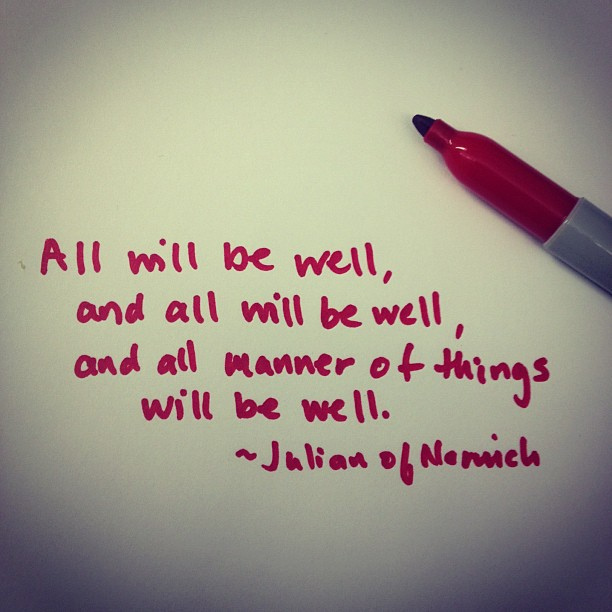 All will be well,
and all will be well,
and all manner of things
will be well.
~Julian of Norwich